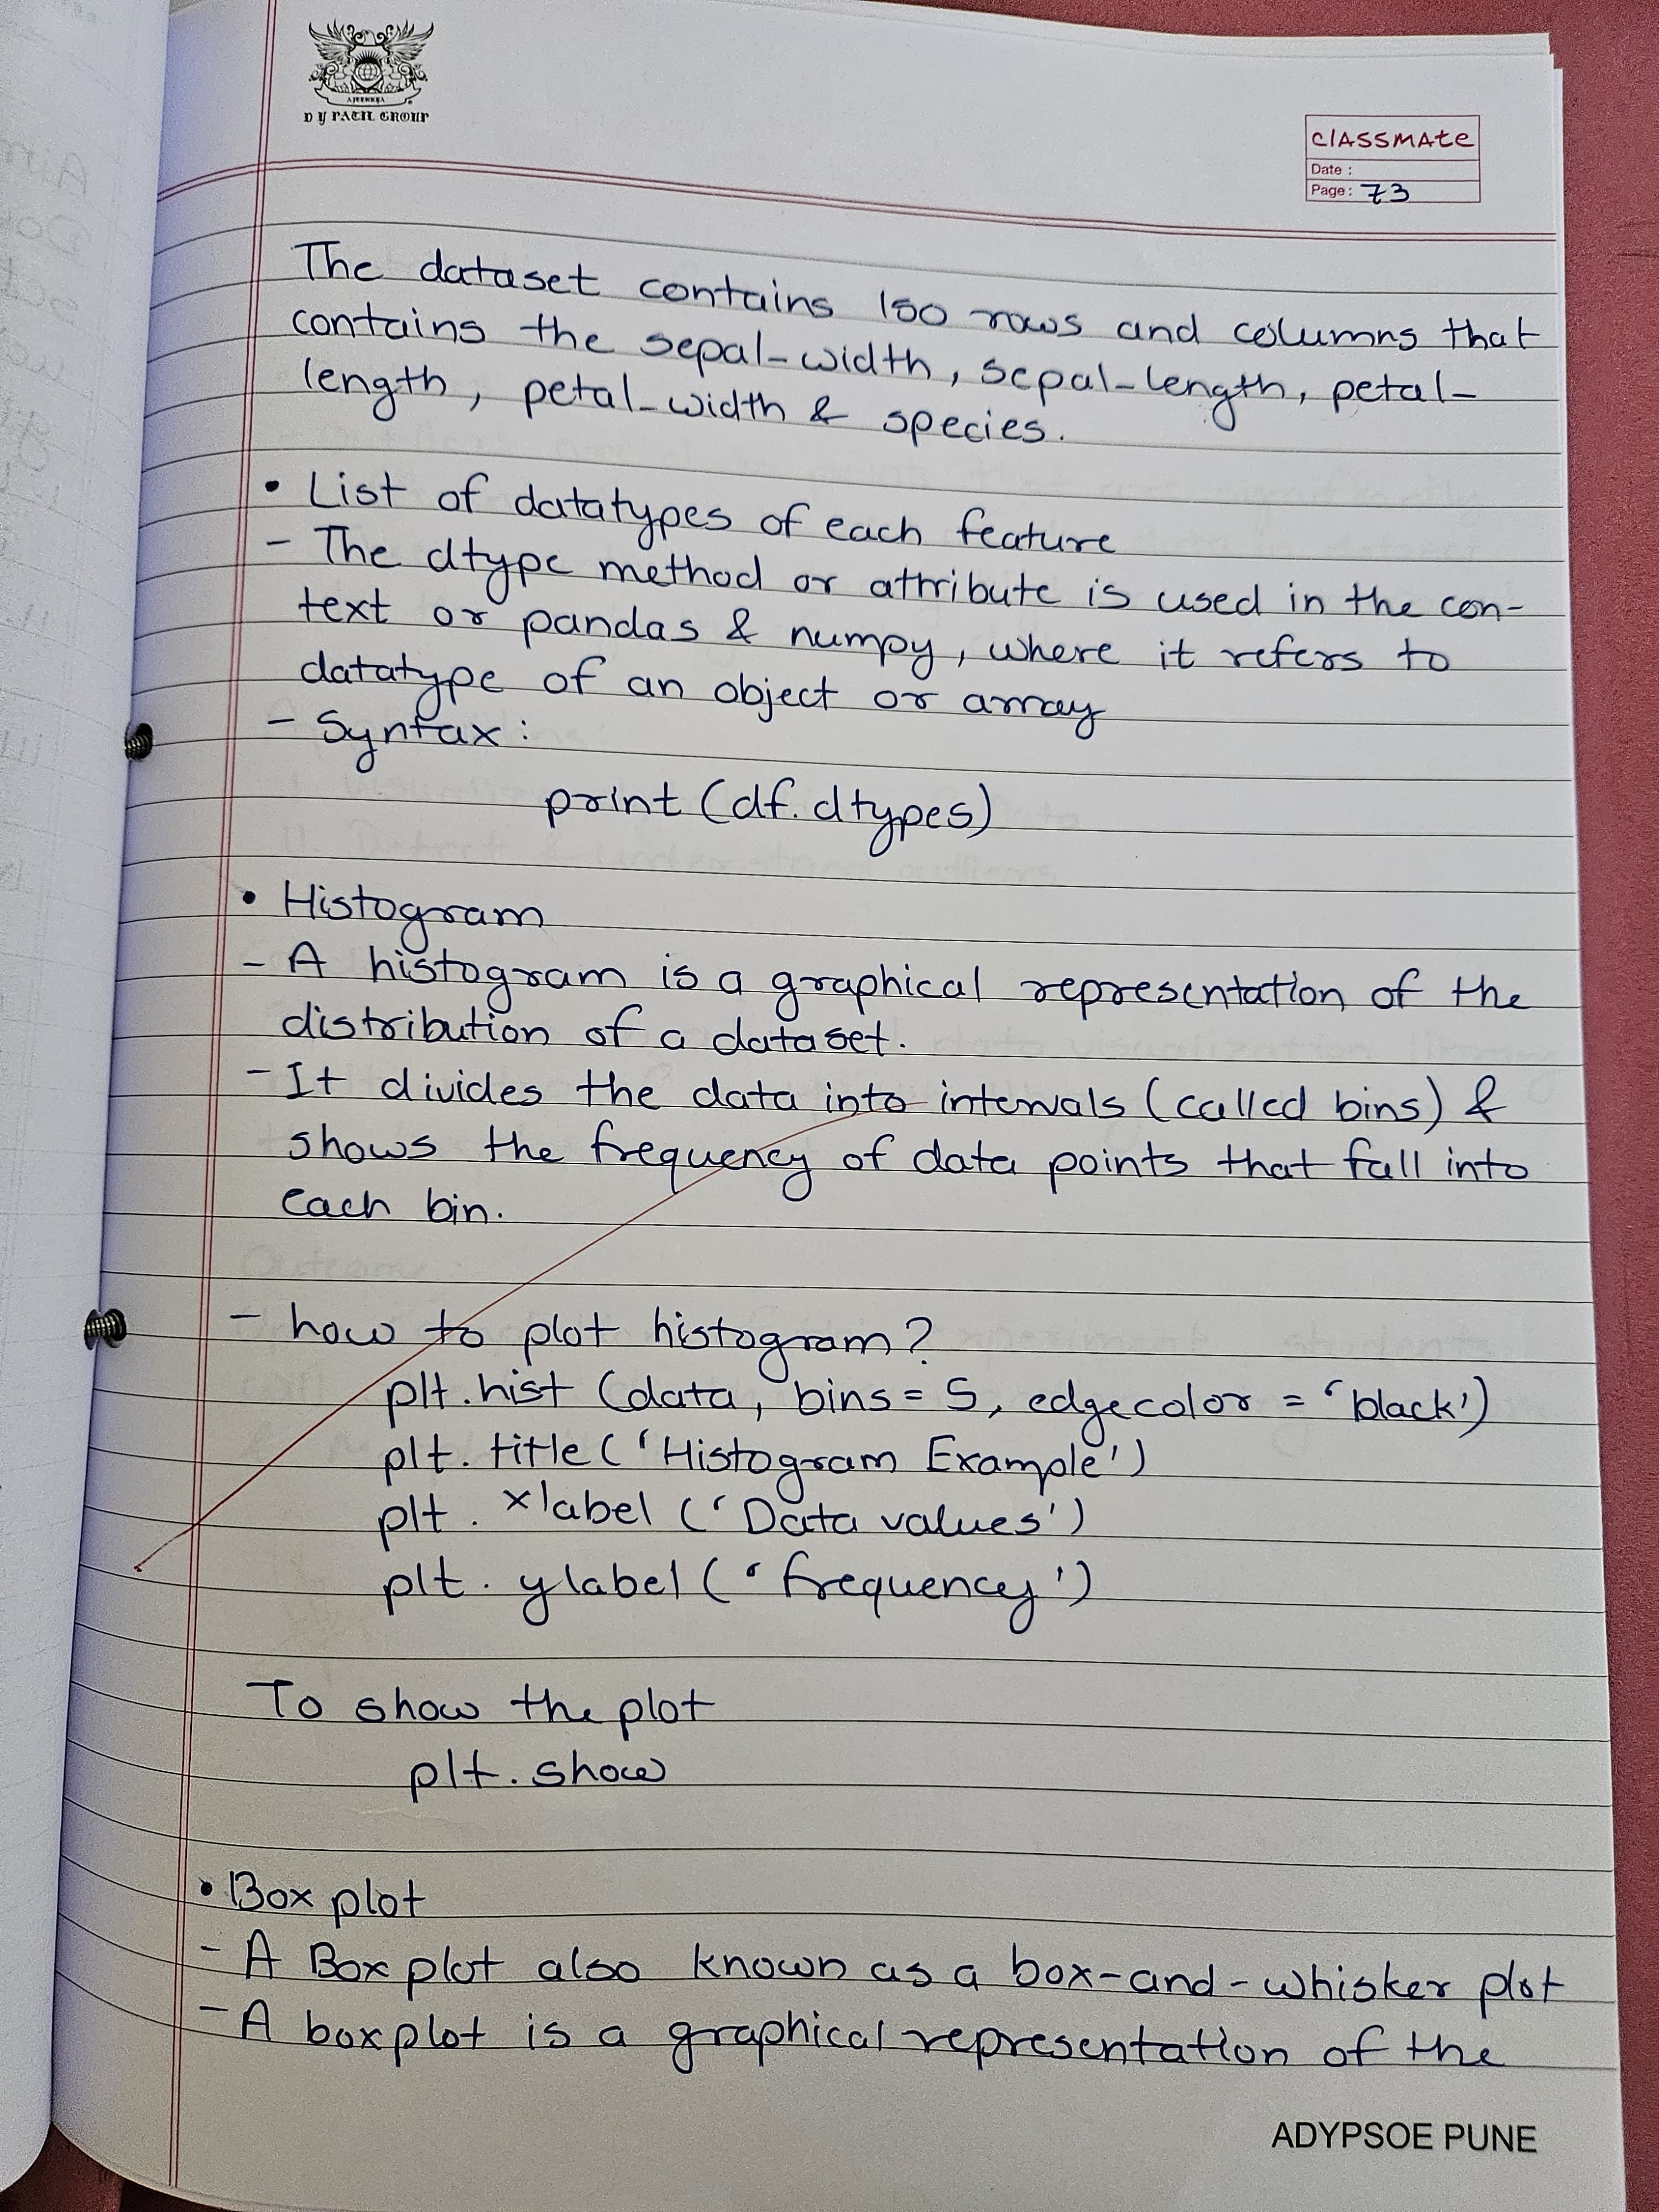 AJEENKYA
D Y PATIL GROUP
CLASSMATE
Date :
Page : 73
The dataset contains 150 rows and columns that
contains the sepal-width, sepal-length, petal-
length, petal-width & species.
• List of datatypes of each feature
- The dtype method or attribute is used in the con-
text or pandas & numpy, where it refers to
datatype of an object or array
- Syntax :
print (df.dtypes)
• Histogram
- A histogram is a graphical representation of the
distribution of a dataset.
- It divides the data into intervals (called bins) &
shows the frequency of data points that fall into
each bin.
- how to plot histogram?
plt.hist (data, bins = 5, edgecolor = 'black')
plt. title ('Histogram Example')
plt. xlabel ('Data values')
plt. ylabel ('frequency')
To show the plot
plt.show
• Box plot
- A Box plot also known as a box-and-whisker plot
- A boxplot is a graphical representation of the
ADYPSOE PUNE